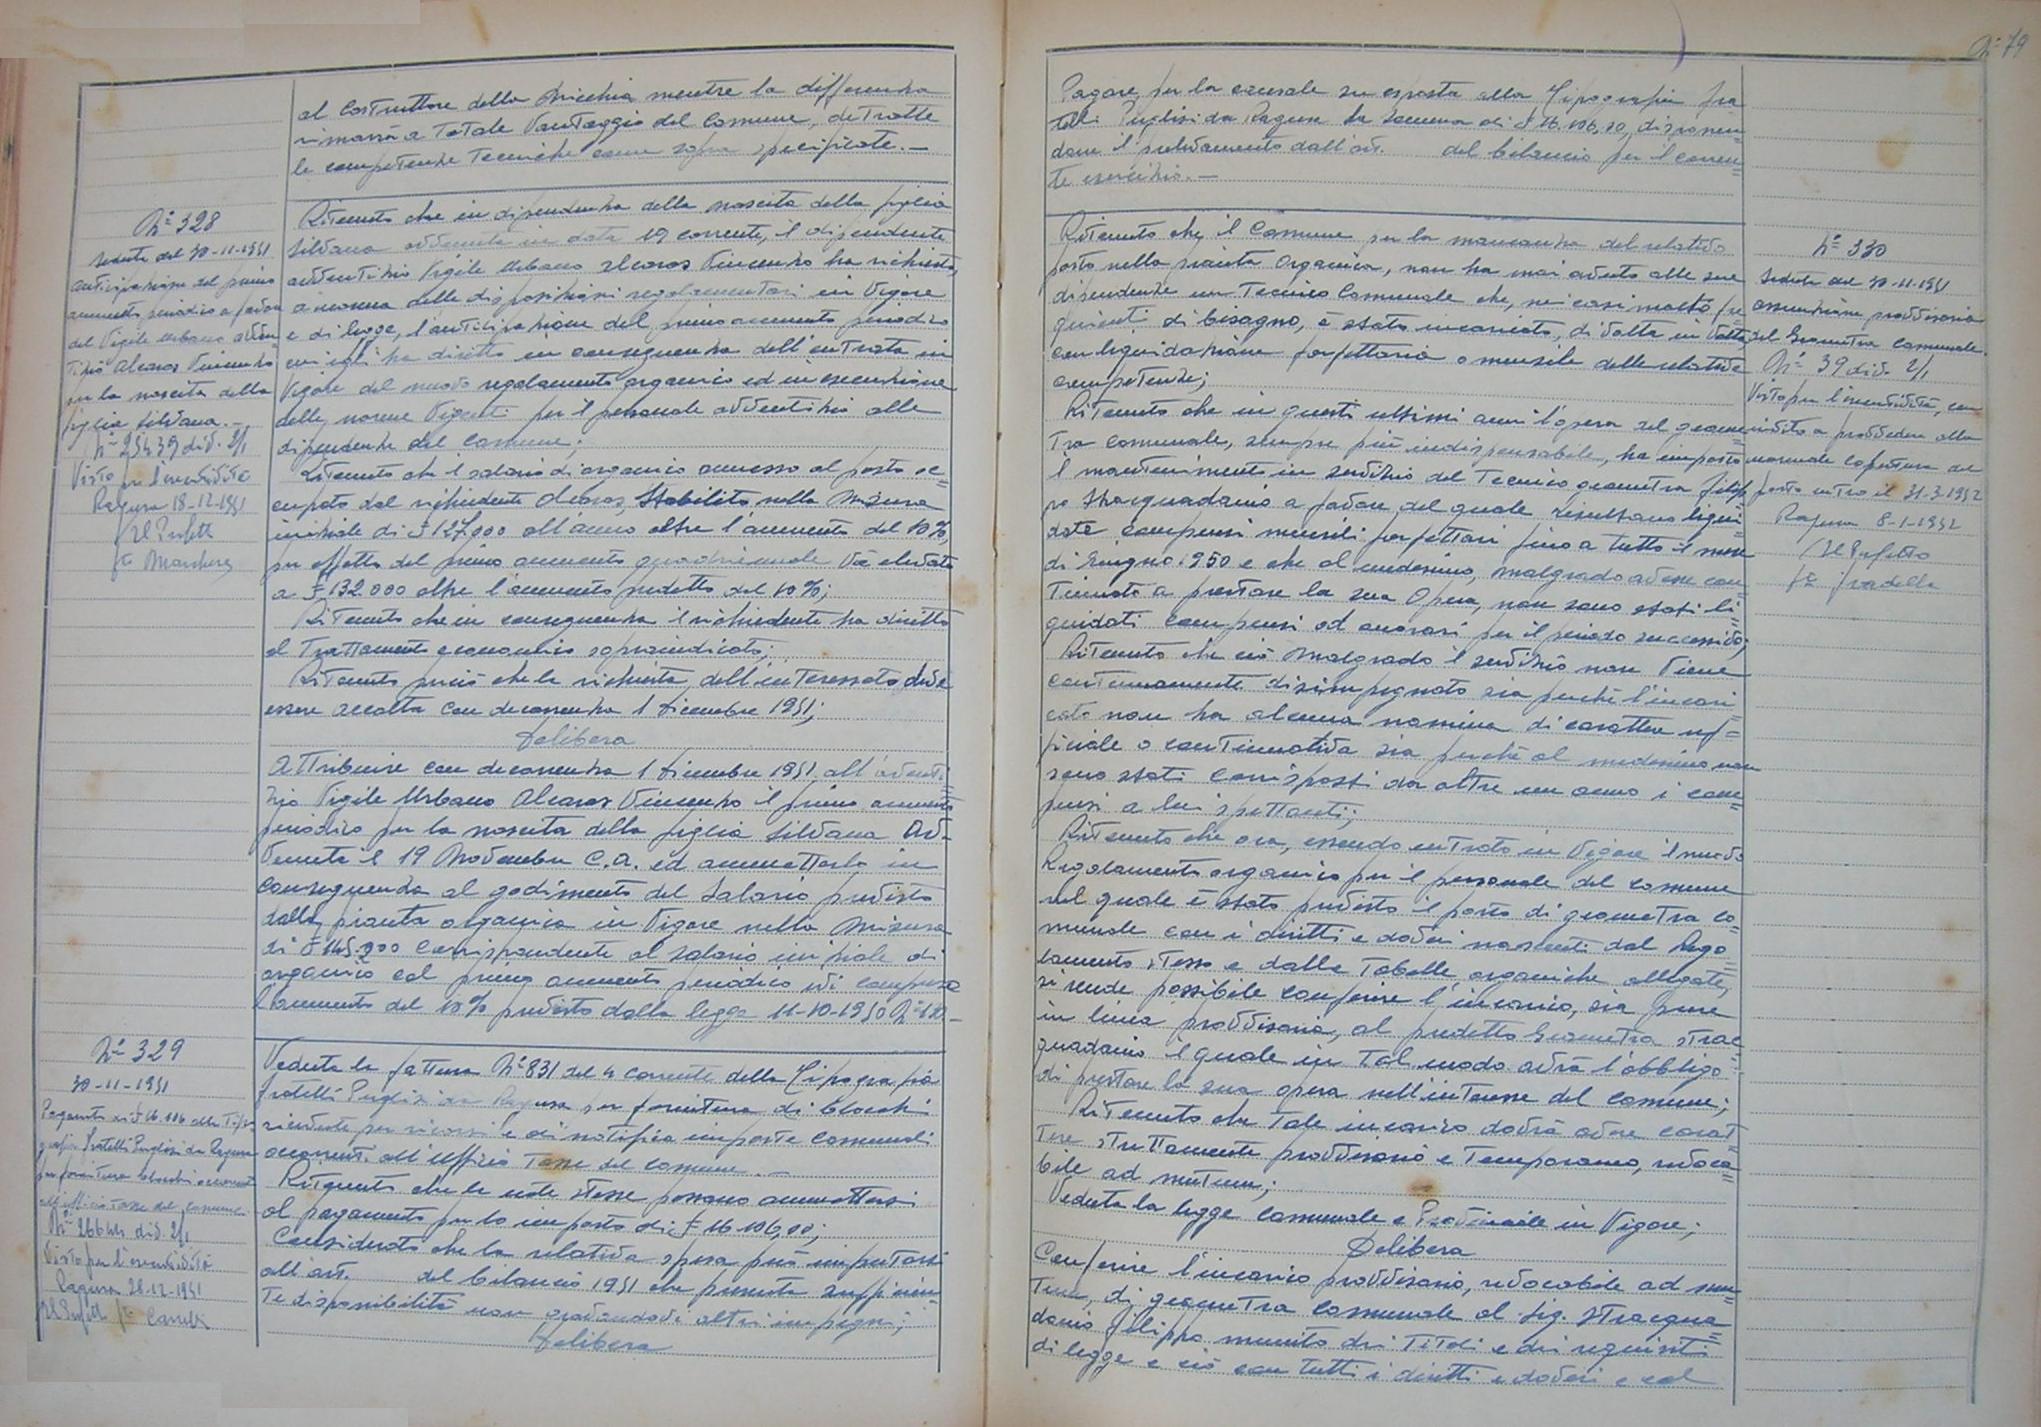 al Costruttore della Nicchia mentre la differenza
rimarrà a Totale Vantaggio del Comune, detratte
le competenze Tecniche come sopra specificate.—
N° 328
Seduta del 30-11-1951
anticipazione del primo
aumento periodico a favore
del Vigile Urbano avven
tizio Alcaras Vincenzo
per la nascita della
figlia Silvana.—
N° 25439 div. 2/1
Visto per l'esecutività
Ragusa 18-12-1951
Il Prefetto
Ritenuto che in dipendenza della nascita della figlia
Silvana avvenuta in data 19 corrente, il dipendente
avventizio Vigile Urbano Alcaras Vincenzo ha richiesto,
a norma delle disposizioni regolamentari in Vigore
e di legge, l'anticipazione del primo aumento periodico
cui egli ha diritto in conseguenza dell'entrata in
Vigore del nuovo regolamento organico ed in esecuzione
delle norme Vigenti per il personale avventizio alle
dipendenze del Comune;
Ritenuto che il salario di organico annesso al posto oc=
cupato dal richiedente Alcaras, Stabilito nella Misura
iniziale di £ 127.000 all'anno oltre l'aumento del 10%,
per effetto del primo aumento quadriennale Va elevato
a £ 132.000 oltre l'aumento predetto del 10%;
Ritenuto che in conseguenza il richiedente ha diritto
al Trattamento economico sopraindicato;
Ritenuto perciò che la richiesta dell'interessato deve
essere accolta con decorrenza 1 Dicembre 1951;
Delibera
Attribuire con decorrenza 1 Dicembre 1951 all'avventi=
zio Vigile Urbano Alcaras Vincenzo il primo aumento
periodico per la nascita della figlia Silvana Av=
Venuta il 19 Novembre C.A. ed ammetterlo in
conseguenza al godimento del Salario previsto
dalla pianta organica in Vigore nella Misura
di £ 145.200 corrispondente al salario iniziale di
organico ed primo aumento periodico ivi compreso
l'aumento del 10% previsto dalla legge 11-10-1950 N°
N° 329
30-11-1951
Pagamento di £ 16.106 alla Tipo
grafia Fratelli Puglisi da Ragusa
per fornitura blocchi occorrenti
all'ufficio Tasse del comune.
N° 26644 div. 2/1
Visto per l'esecutività
Ragusa 28-12-1951
Il Prefetto
Veduta la fattura N° 831 del 4 corrente della Tipografia
fratelli Puglisi da Ragusa per fornitura di blocchi
ricevute per ricorsi e di notifica imposte comunali
occorrenti all'Ufficio Tasse del comune.—
Ritenuto che le note stesse possono ammettersi
al pagamento per lo importo di £ 16.106,00;
Considerato che la relativa spesa può imputarsi
all'art. del bilancio 1951 che presenta sufficien=
Te disponibilità non gravandovi altri impegni;
Delibera
N° 79
Pagare, per la causale su esposta alla Tipografia fra
telli Puglisi da Ragusa la Somma di £ 16.106,00, disponen=
done il prelevamento dall'art. del bilancio per il corren=
te esercizio.—
Ritenuto che il Comune per la mancanza del relativo
posto nella pianta Organica, non ha mai avuto alle sue
dipendenze un Tecnico Comunale che, nei casi molto fre
quenti di bisogno, è stato incaricato, di Volta in Volta
con liquidazione forfettaria o mensile delle relative
competenze;
Ritenuto che in questi ultimi anni l'opera del geome=
Tra comunale, sempre più indispensabile, ha imposto
il mantenimento in servizio del Tecnico geometra Filip
po Stracquadanio a favore del quale risultano liqui=
date compensi mensili forfettari fino a tutto il mese
di Giugno 1950 e che al medesimo, malgrado avesse con=
Tinuato a prestare la sua Opera, non sono stati li=
quidati compensi od onorari per il periodo successivo;
Ritenuto che ciò malgrado il servizio non Viene
continuamente disimpegnato sia perchè l'incari=
cato non ha alcuna nomina di carattere uf=
ficiale o continuativa sia perchè al medesimo non
sono stati corrisposti da oltre un anno i com=
pensi a lui spettanti;
Ritenuto che ora, essendo entrato in Vigore il nuovo
Regolamento organico per il personale del comune
nel quale è stato previsto il posto di geometra co=
munale con i diritti e doveri nascenti dal Rego=
lamento stesso e dalle Tabelle organiche allegate,
si rende possibile conferire l'incarico, sia pure
in linea provvisoria, al predetto Geometra Strac=
quadanio il quale in Tal modo avrà l'obbligo
di prestare la sua opera nell'interesse del comune;
Ritenuto che Tale incarico dovrà avere carat
Tere strettamente provvisorio e Temporaneo, revoca=
bile ad nutum;
Veduta la legge comunale e Provinciale in Vigore;
Delibera
Conferire l'incarico provvisorio, revocabile ad nu=
Tum, di geometra comunale al Sig. Stracqua=
danio Filippo munito dei Titoli e dei requisiti
di legge e ciò con tutti i diritti e doveri e col
N° 330
Seduta del 30-11-1951
assunzione provvisoria
del Geometra Comunale.
N° 39 div. 2/1
Visto per l'esecutività, con
invito a provvedere alla
normale copertura del
posto entro il 31-3-1952
Ragusa 8-1-1952
Il Prefetto